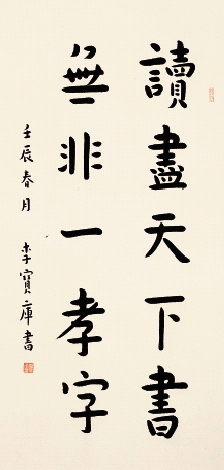 讀盡天下書
無非一孝字
壬辰春月 李寶庫書